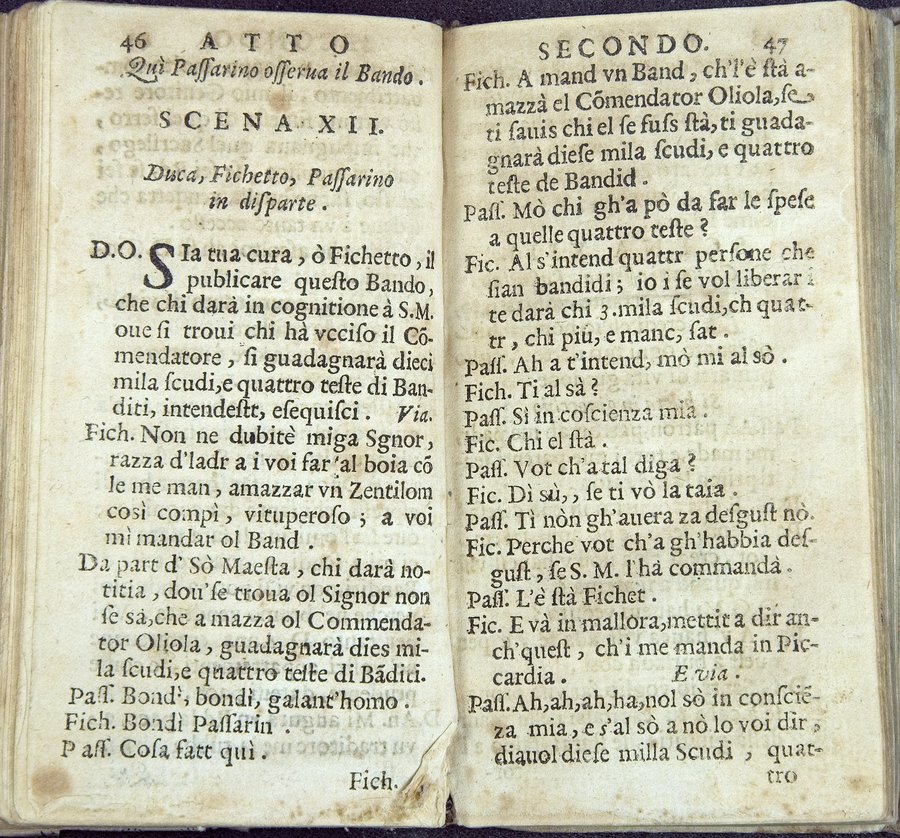 46 ATTO
Quì Paſſarino oſſerua il Bando.
SCENA XII.
Duca, Fichetto, Paſſarino
in diſparte.
D.O. SIa tua cura, ò Fichetto, il
publicare queſto Bando,
che chi darà in cognitione à S.M.
oue ſi troui chi hà vcciſo il Cō-
mendatore, ſi guadagnarà dieci
mila ſcudi,e quattro teſte di Ban-
diti, intendeſtt, eſequiſci. Via.
Fich. Non ne dubitè miga Sgnor,
razza d'ladr a i voi far al boia cō
le me man, amazzar vn Zentilom
così compì, vituperoſo; a voi
mì mandar ol Band.
Da part d' Sò Maeſta, chi darà no-
titia, dou'ſe troua ol Signor non
ſe sà,che a mazza ol Commenda-
tor Oliola, guadagnarà dies mi-
la ſcudi,e quattro teſte di Bāditi.
Paſſ. Bondì, bondì, galant'homo.
Fich. Bondì Paſſarin.
Paſſ. Coſa fatt quì.
Fich.
SECONDO. 47
Fich. A mand vn Band, ch'l'è ſtà a-
mazzà el Cōmendator Oliola,ſe
ti ſauis chi el ſe fuſs ſtà,ti guada-
gnarà dieſe mila ſcudi, e quattro
teſte de Bandid.
Paſſ. Mò chi gh'a pò da far le ſpeſe
a quelle quattro teſte?
Fic. Al s'intend quattr perſone che
ſian bandidi; io i ſe vol liberar i
te darà chi 3.mila ſcudi,ch quat-
tr, chi più, e manc, ſat.
Paſſ. Ah a t'intend, mò mi al sò.
Fich. Ti al sà?
Paſſ. Sì in coſcienza mia.
Fic. Chi el ſtà.
Paſſ. Vot ch'a tal diga?
Fic. Dì sù,, ſe ti vò la taia.
Paſſ. Tì nòn gh'auera za deſguſt nò.
Fic. Perche vot ch'a gh'habbia deſ-
guſt, ſe S. M. l'hà commandà.
Paſſ. L'è ſtà Fichet.
Fic. E và in mallora,mettit a dir an-
ch'queſt, ch'i me manda in Pic-
cardia. E via.
Paſſ.Ah,ah,ah,ha,nol sò in conſciē-
za mia, e s'al sò a nò lo voi dir,
diauol dieſe milla Scudi, quat-
tro